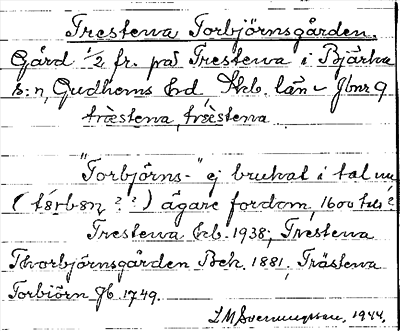 Trestena Torbjörnsgården.
Gård 1/2 fr. på Trestena i Bjärka
s:n, Gudhems hd Skb. län – Jbnr 9
træstena, træstena
"Torbjörns-" ej brukat i tal nu
(tórbən ? ?) ägare fordom, 1600 tal?
Trestena Ekb. 1938; Trestena
Thorbjörnsgården Bek. 1881; Trästena
Torbiörn Jb. 1749.
1944.